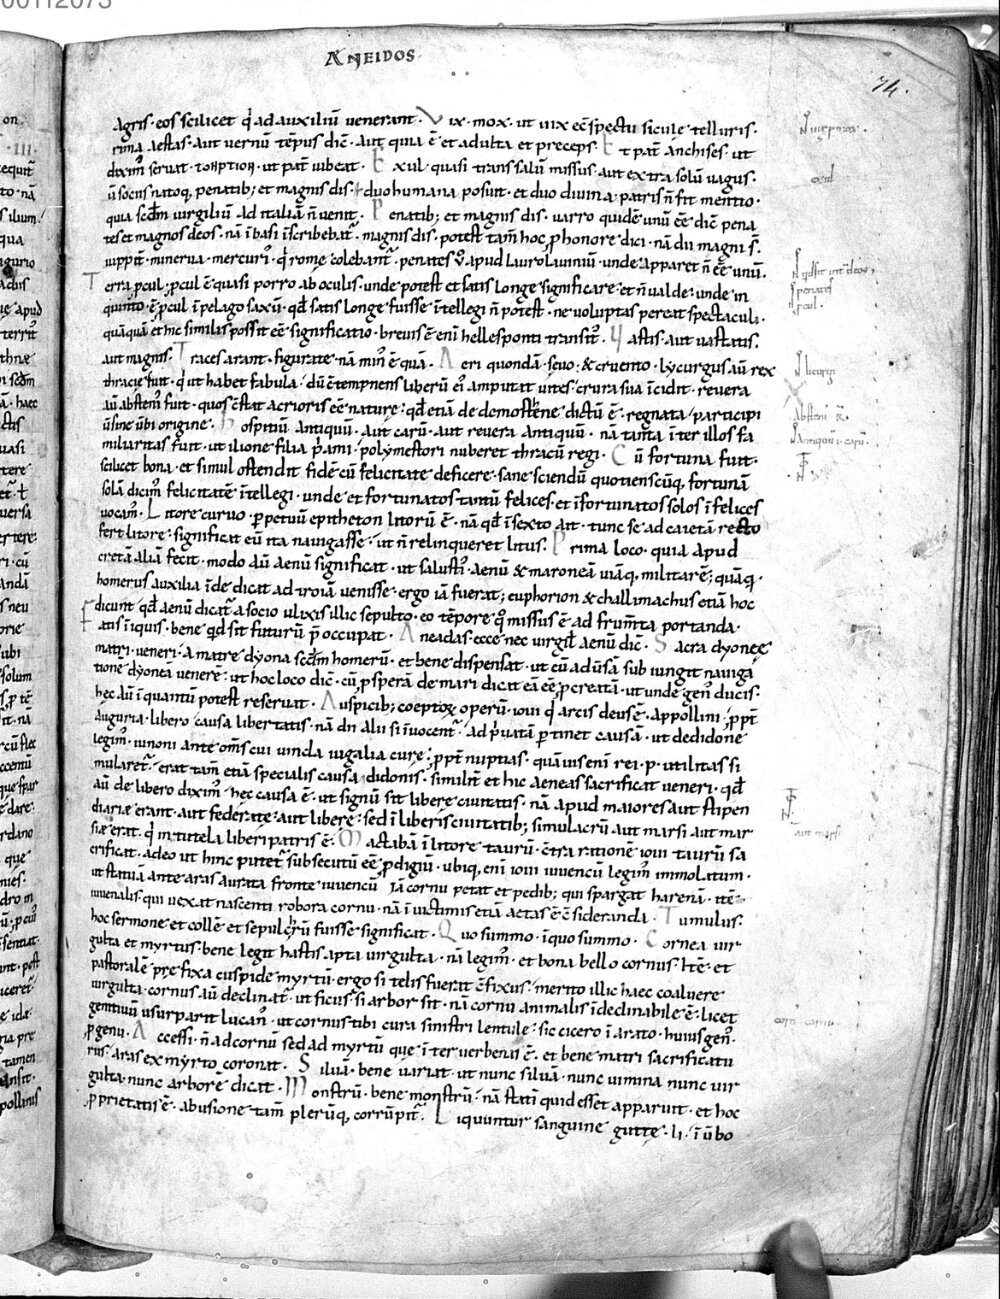 ÆNEIDOS
74.
agris· eos scilicet q̇ ad auxiliū venerant· Vix· mox· ut uix ēē spectu sicule telluris·
rima aestas· aut vernū tēpus diċ· aut qua ē et adulta et preceps· Et pat̄ anchises· ut
diximꝰ servat· ut pat̄ iubeat· Exul quasi trans salū missus· aut extra solū vagus·
ū sociis natoq, penatib; et magnis dis· duo humana posuit· et duo divina· patris ñ fit mentio·
quia scd̄m virgiliū ad italiā ñ venit· Penatib; et magnis dis· varro quidē unū ēē diċ pena
tes et magnos deos· nā ī basi īscribebat᷑· magnis dis· potest tam̄ hoc ꝓ honore dici· nā dii magni s̄·
iuppit̄· minerva· mercuri᷒· q̇ rome colebant᷑· penates ṽ apud laurolavniū· unde apparet ñ ēē unū·
Terra ꝓcul· ꝓcul ē quasi porro ab oculis· unde potest et satis longe significare· et ñ valde· unde in
quinto· ē ꝓcul ī pelago saxū· qđ satis longe fuisse ītellegi ñ potest· ne voluptas pereat spectaculi·
quāquā et hic similis possit ēē significatio· brevis ē enī hellesponti transit᷒· Vastis· aut vastatus·
aut magnis· Traces arant· figurate· nā min᷒ ē qua· Acri quondā· sevo· & cruento· lycurgus aū rex
thracie fuit· q̇ ut habet fabula· dū c̄tempnens liberū ei᷒ amputat vites· crura sua īcidit· revera
aū abstemi᷒ fuit· quos c̄stat acrioris ēē nature· qđ etiā de demostene dictū ē· regnata· participi
ū sine ūbi origine· Hospitiū antiquū· aut carū· aut revera antiquū· nā tanta īter illos fa
miliaritas fuit· ut ilione filia p̄ami· polymestori nuberet thracū regi· Cū fortuna fuit·
scilicet bona· et simul ostendit fidē cū felicitate deficere· sane sciendū quotienscūq, fortunā
solā dicim᷒ felicitatē ītellegi· unde et fortunatos tantū felices· et īfortunatos solos īfelices
vocam᷒· Litore curvo· ꝑpetuū epitheton litorū ē· nā qđ ī sexto ait· tunc se ad caietā recto
fert litore· significat eū ita navigasse· ut ñ relinqueret litus· Prima loco· quia apud
cretā aliā fecit· modo aū aenū significat· ut salusti᷒· aenū & maroneā viāq, militarē; quāq·
homerus auxilia īde dicat ad troiā venisse· ergo iā fuerat; euphorion & challimachus etiā hoc
dicunt qđ aenū dicat᷑ a socio ulixis illic sepulto· eo tēpore q̊ missus ē ad frum̄ta portanda·
Fatis iniquis· bene qd sit futurū p̄occupat· Aneadas· ecce nec virgil᷒ aenū diċ· Sacra dyoneę
matri· veneri· a matre dyona scd̄m homerū· et bene dispensat· ut cū adūsa sub iungit naviga
tione dyoneā venere· ut hoc loco diċ· cū ꝓsperā de mari dicit eā ēē ꝓcreatā· ut unde gen᷒ ducis·
hec aū ī quantū potest reservat· Auspicib; coeptoꝝ operū· iovi q̇ arcis deus ē· appollini· ꝓpt̄
auguria· libero causa libertatis· nā dn̄ alii si īvocent᷑· ad p̄vatā ꝑtinet causā· ut dedidone
legim᷒· iunoni ante om̄s cui vincla iugalia cure· ꝓpt̄ nuptias· quāvis enī rei· p· utilitas si
mularet᷑· erat tam̄ etiā specialis causa didonis· similit̄ et hic aeneas sacrificat veneri· qđ
aū de libero dixim᷒· hec causa ē· ut signū sit libere civitatis· nā apud maiores aut stipen
diariæ erant· aut federate· aut libere· sed ī liberis civitatib; simulacrū aut marsi aut mar
siæ erat· q̇ in tutela liberi patris ē· Mactabā ī litore taurū· c̄tra rationē iovi taurū sa
crificat· adeo ut hinc putet᷑ subsecutū ēē ꝓdigiū· ubiq, enī iovi iuvencū legim᷒ immolatum·
ut statuā ante aras aurata fronte iuvencū· Iā cornu petat et pedib; qui spargat harenā· itē
iuvenalis· qui vexat nascenti robora cornu· nā ī victimis etiā aetas ē c̄sideranda· Tumulus·
hoc sermone et collē· et sepulcrū fuisse significat· Quo summo· ī quo summo· Cornea vir
gulta et myrtus· bene legit hastis apta virgulta· nā legim᷒· et bona bello cornus· Itē· et
pastoralē prefixa cuspide myrtū· ergo si telis fuerat c̄fixus· merito illic haec coaluere
virgulta· cornus aū declinat᷑· ut ficus· si arbor sit· nā cornu animalis īdeclinabile ē· licet
gentivū usurparit lucan᷒· ut cornus tibi cura sinistri lentule· sic cicero ī arato· huius gen᷒·
ꝓ genu· Accessi· ñ ad cornu sed ad myrtū que īter verbenas ē· et bene matri sacrificatu
rus· aras ex myrto coronat· Silvā· bene variat· ut nunc silvā· nunc vimina nunc vir
gulta· nunc arborē dicat· Monstrū· bene monstrū· nā statī quid esset apparuit· et hoc
ꝓprietatis ē· abusione tam̄ plerūq, corrūpit᷑· Liquuntur sanguine guttę· li· ī ūbo